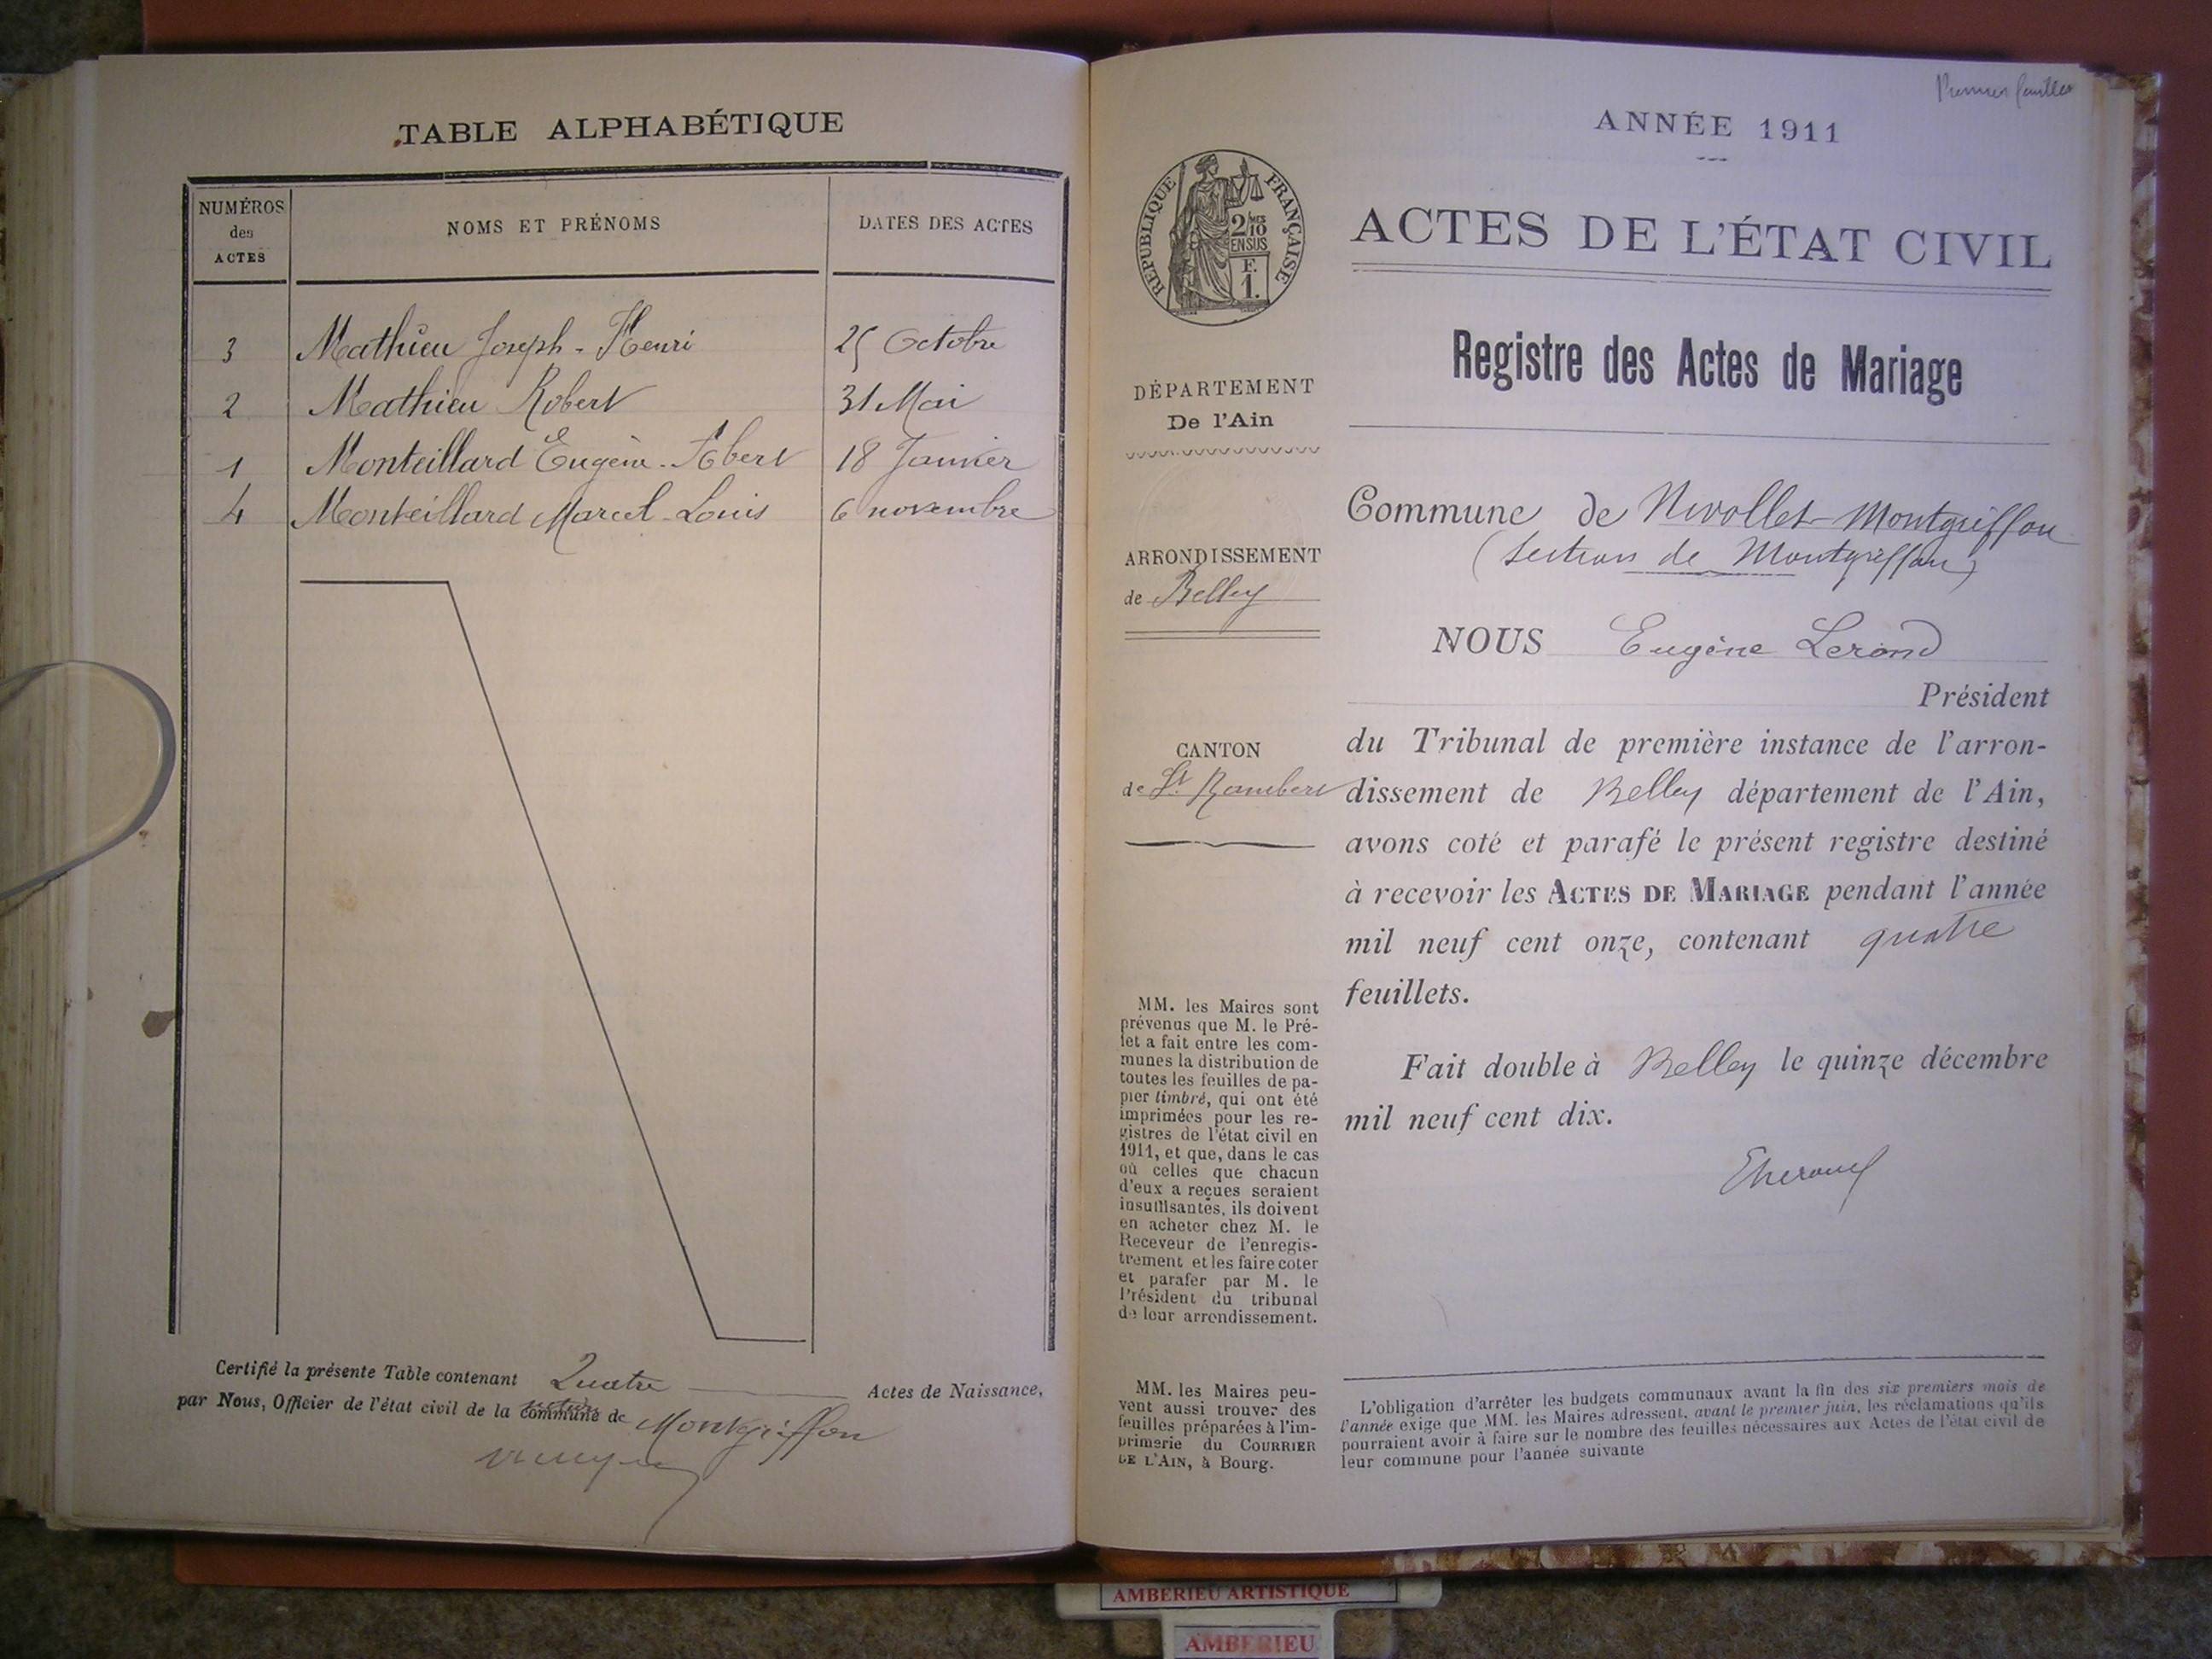 TABLE ALPHABÉTIQUE
NUMÉROS
des
ACTES
NOMS ET PRÉNOMS
DATES DES ACTES
3 Mathieu Joseph-Henri 25 Octobre
2 Mathieu Robert 31 Mai
1 Monteillard Eugène-Albert 18 Janvier
4 Monteillard Marcel-Louis 6 novembre
Certifié la présente Table contenant Quatre Actes de Naissance,
par Nous, Officier de l'état civil de la commune de Montgriffon
section
Premier feuillet
ANNÉE 1911
RÉPUBLIQUE FRANÇAISE
2/10
EN SUS
F.
1.
ACTES DE L'ÉTAT CIVIL
Registre des Actes de Mariage
DÉPARTEMENT
De l'Ain
ARRONDISSEMENT
de Belley
CANTON
de St Rambert
MM. les Maires sont
prévenus que M. le Pré-
fet a fait entre les com-
munes la distribution de
toutes les feuilles de pa-
pier timbré, qui ont été
imprimées pour les re-
gistres de l'état civil en
1911, et que, dans le cas
où celles que chacun
d'eux a reçues seraient
insuffisantes, ils doivent
en acheter chez M. le
Receveur de l'enregis-
trement et les faire coter
et parafer par M. le
Président du tribunal
de leur arrondissement.
MM. les Maires peu-
vent aussi trouver des
feuilles préparées à l'im-
primerie du COURRIER
DE L'AIN, à Bourg.
Commune de Nivollet-Montgriffon
(Section de Montgriffon)
NOUS Eugène Lerond
Président
du Tribunal de première instance de l'arron-
dissement de Belley département de l'Ain,
avons coté et parafé le présent registre destiné
à recevoir les ACTES DE MARIAGE pendant l'année
mil neuf cent onze, contenant quatre
feuillets.
Fait double à Belley le quinze décembre
mil neuf cent dix.
L'obligation d'arrêter les budgets communaux avant la fin des six premiers mois de
l'année exige que MM. les Maires adressent, avant le premier juin, les réclamations qu'ils
pourraient avoir à faire sur le nombre des feuilles nécessaires aux Actes de l'état civil de
leur commune pour l'année suivante
AMBERIEU ARTISTIQUE
AMBERIEU